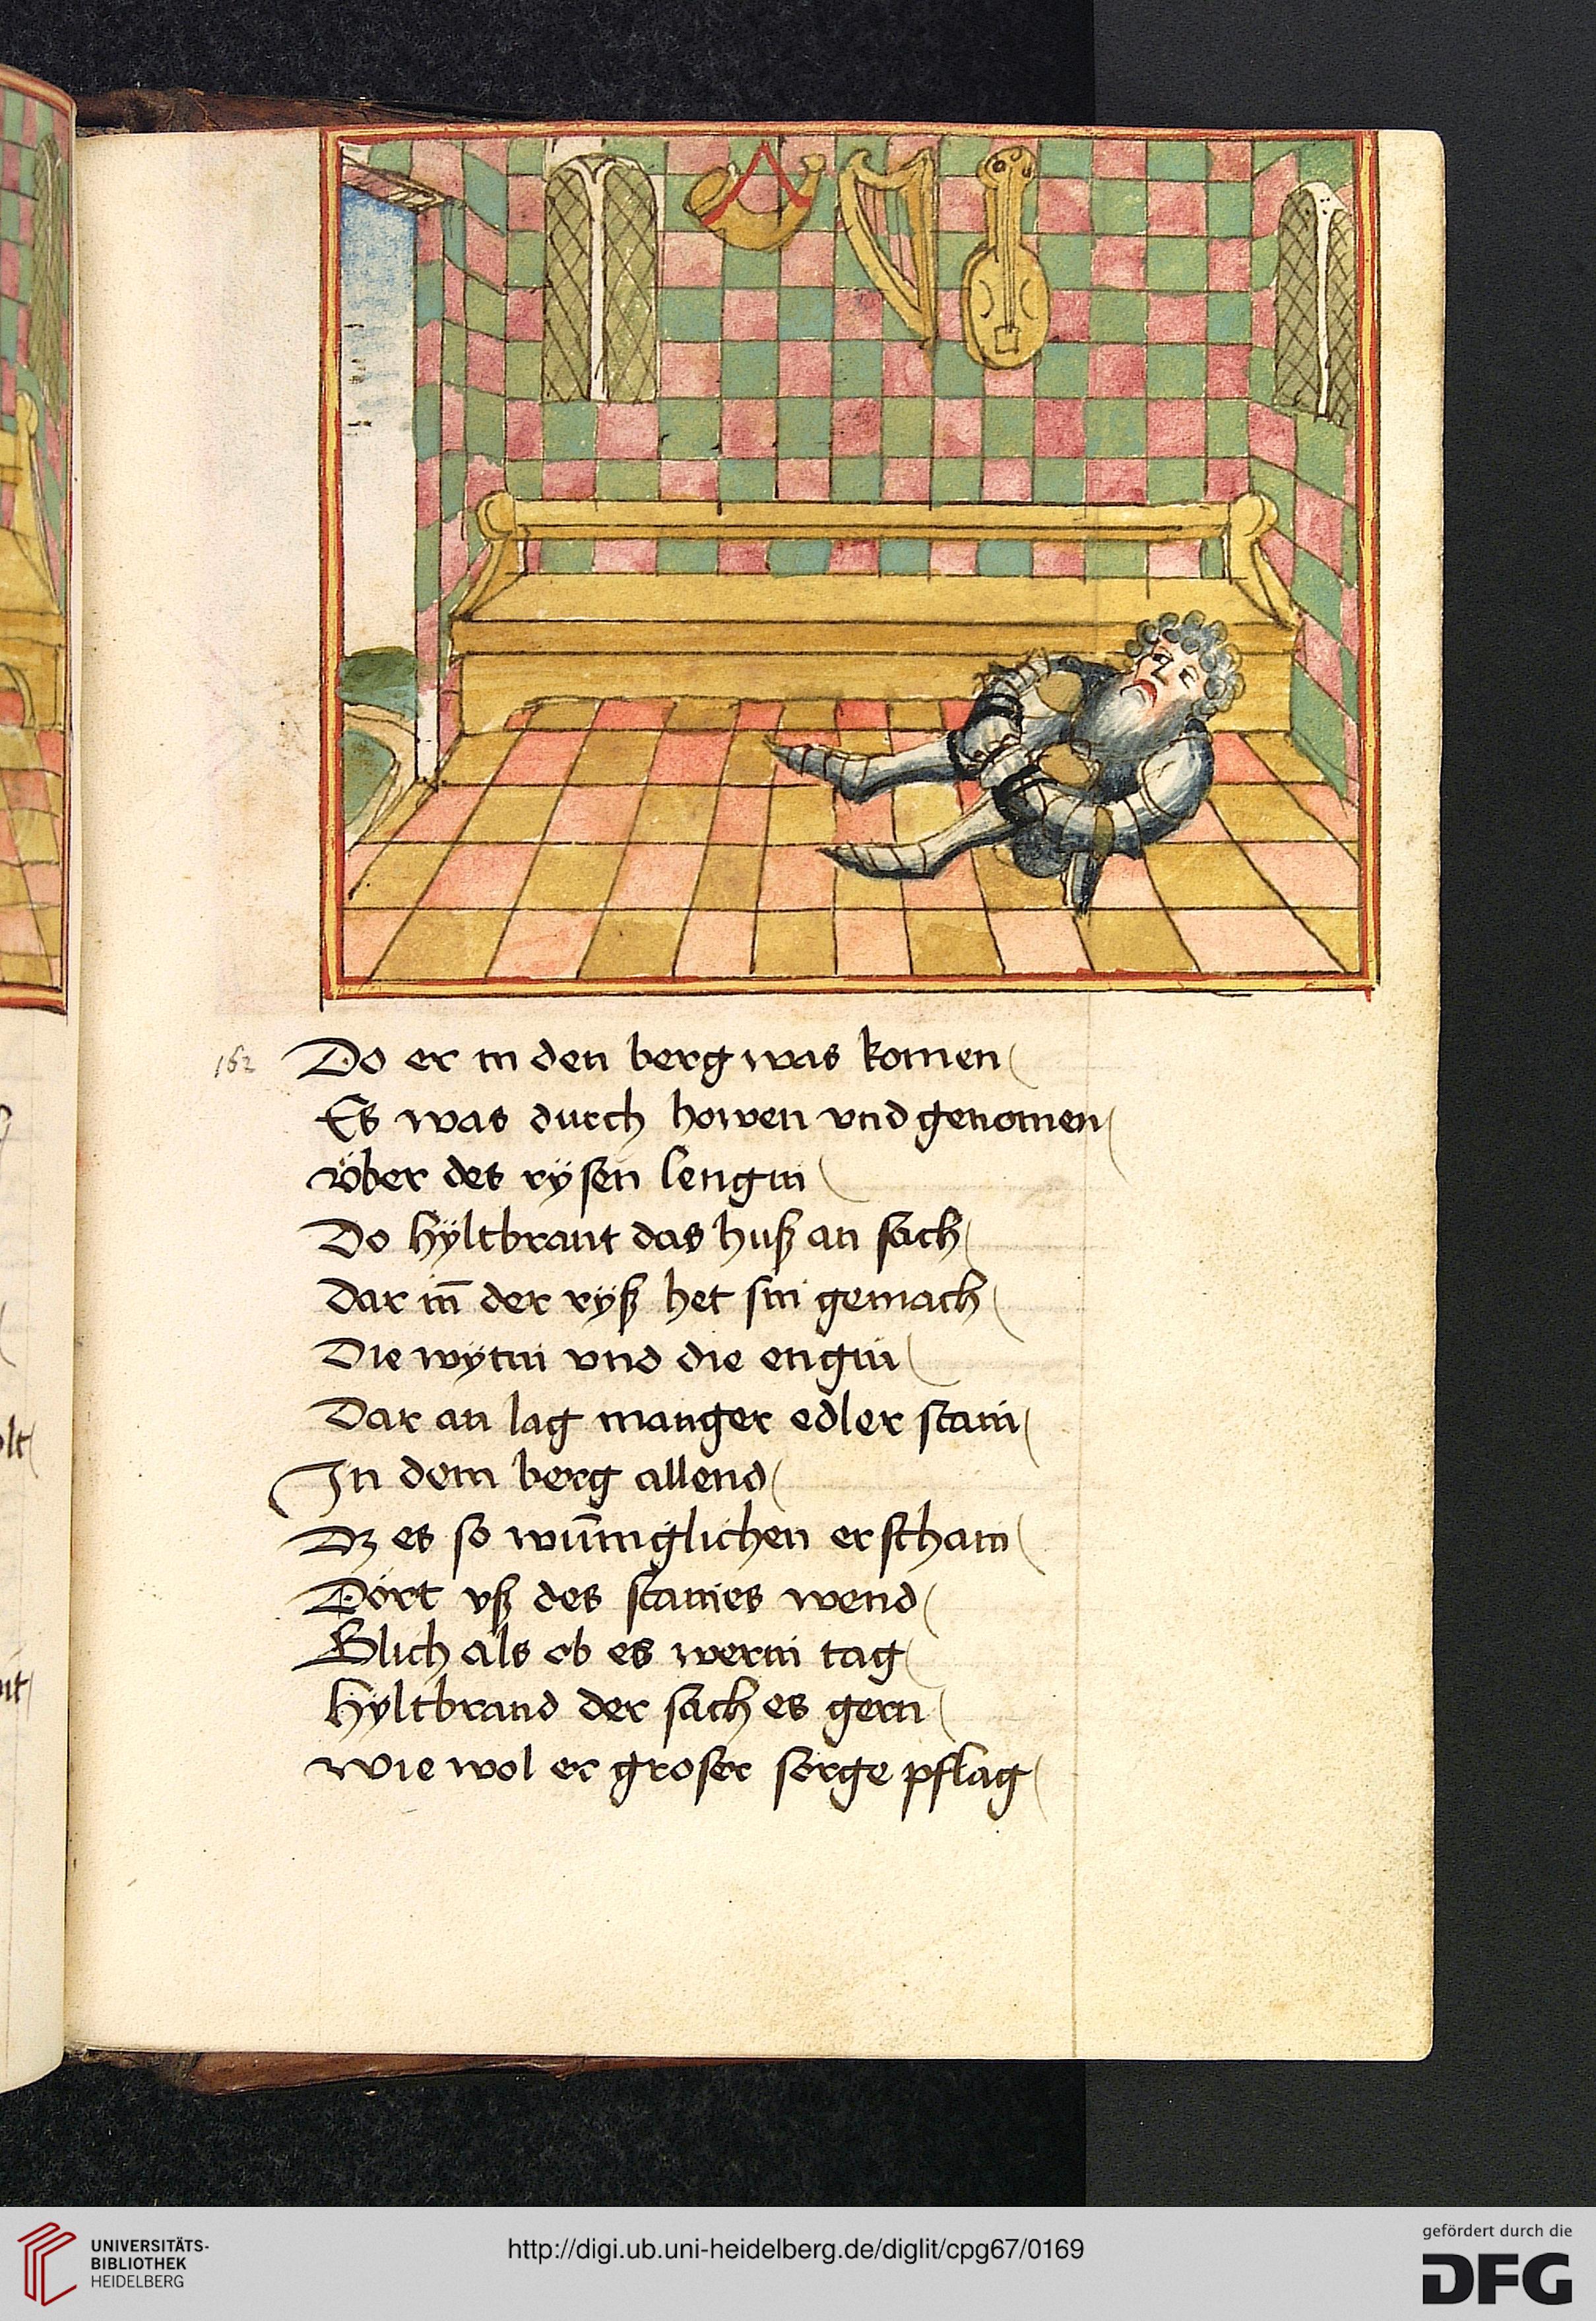 162
Do er in den berg was komen
Es was durch howen vnd genomen
v̈ber des rÿsen lengin
Do hÿltbrant das huß an sach
Dar in̄ der ryß het sin gemach
Die wÿtin vnd die engin
Dar an lag manger edler stain
In dem berg allend
Dz es so wūniglichen erschain
Dort vß des staines wend
Glich als ob es werin tag
hyltbrand der sach es gern
wie wol er groser sorge pflag
UNIVERSITÄTS-
BIBLIOTHEK
HEIDELBERG
http://digi.ub.uni-heidelberg.de/diglit/cpg67/0169
gefördert durch die
DFG